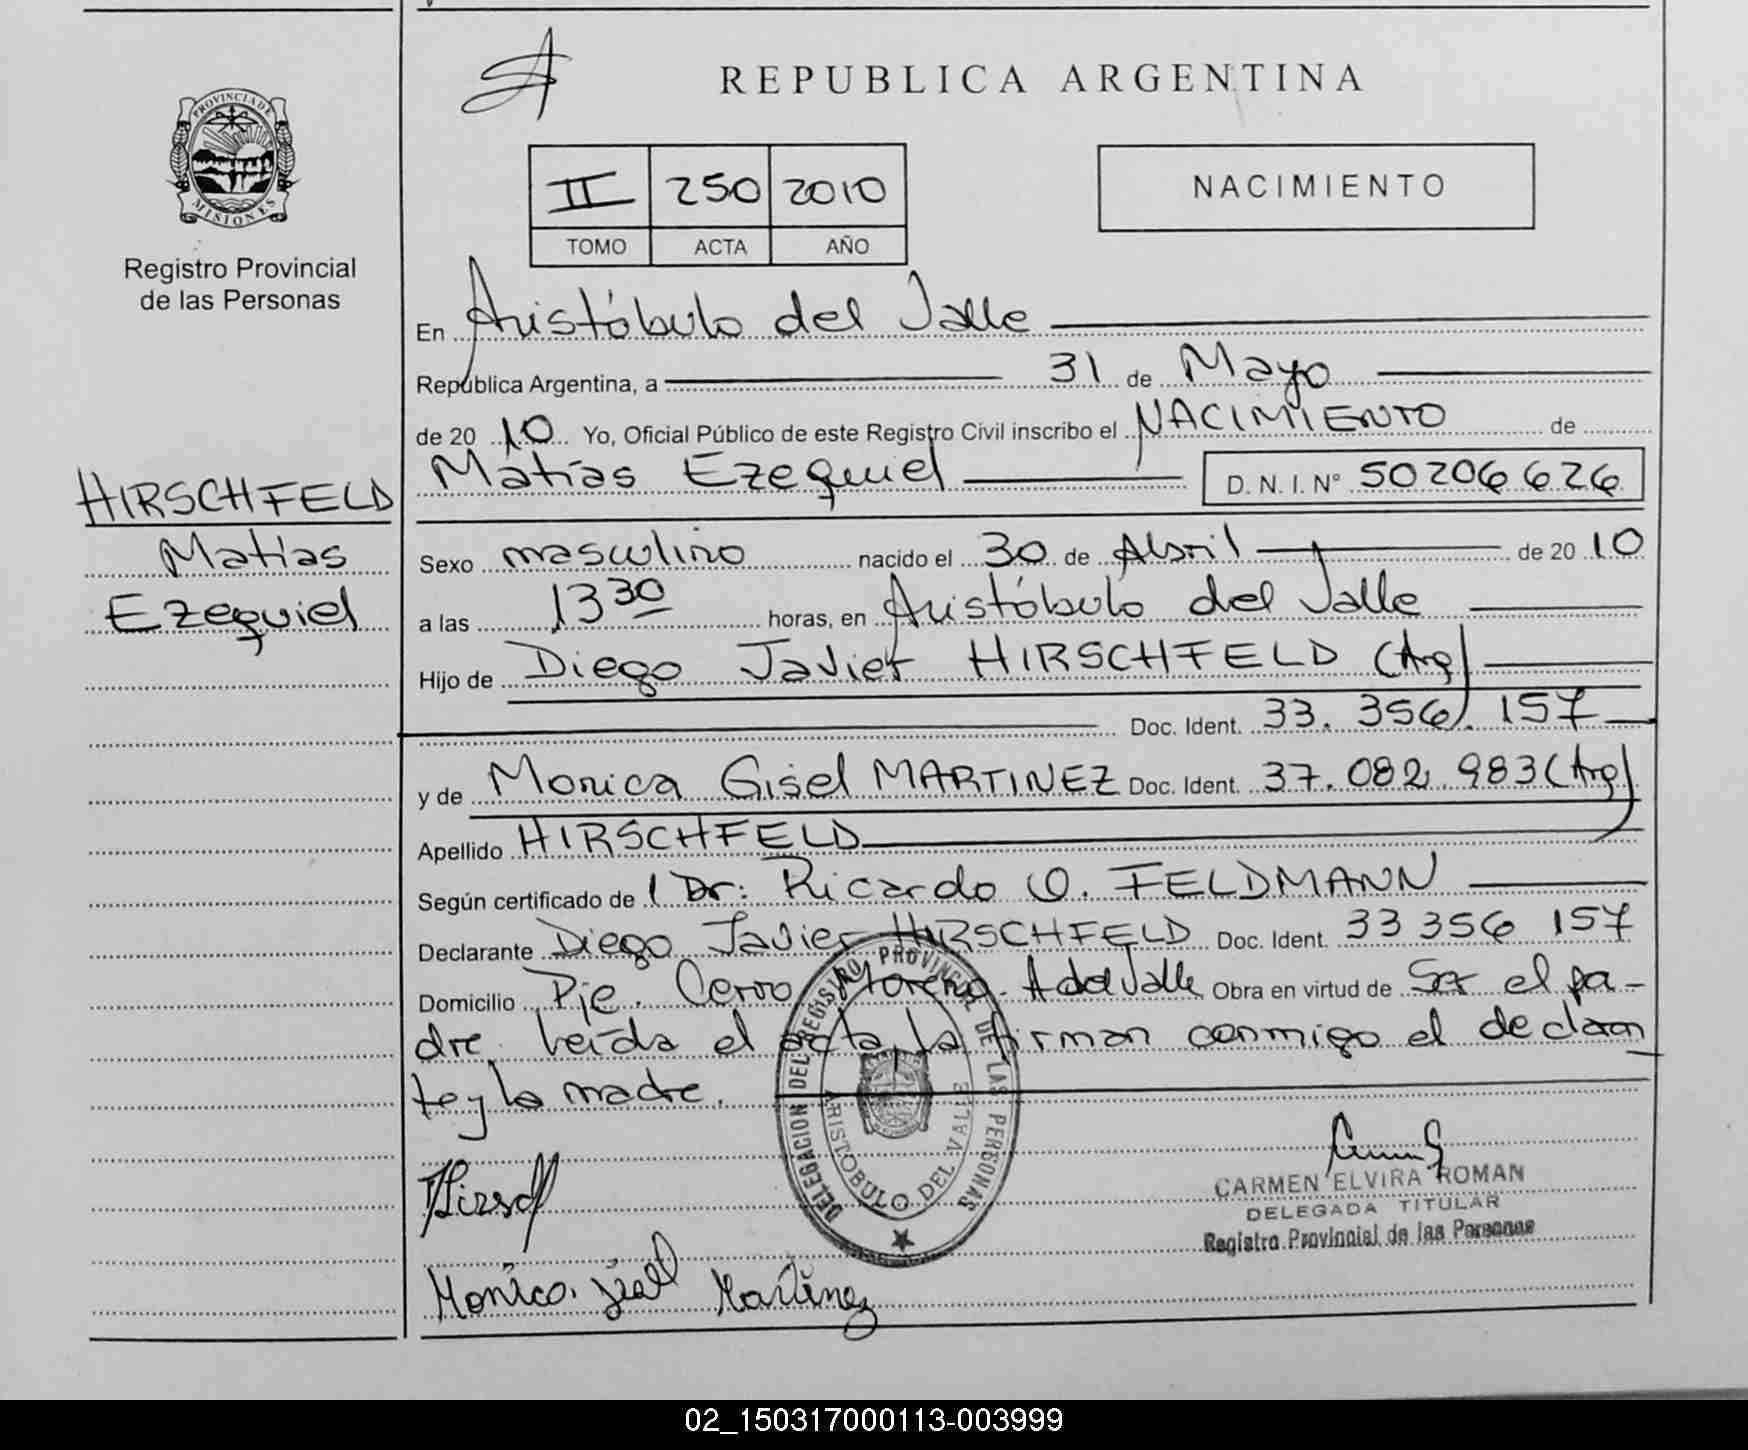 REPUBLICA ARGENTINA
PROVINCIA DE
MISIONES
Registro Provincial
de las Personas
II 250 2010
TOMO ACTA AÑO
NACIMIENTO
En Aristóbulo del Valle
República Argentina, a 31 de Mayo
de 20 10 Yo, Oficial Público de este Registro Civil inscribo el NACIMIENTO de
Matías Ezequiel D.N.I. N° 50206626
HIRSCHFELD
Matías
Ezequiel
Sexo masculino nacido el 30 de Abril de 20 10
a las 13 30 horas, en Aristóbulo del Valle
Hijo de Diego Javier HIRSCHFELD (Arg)
Doc. Ident. 33.356.157
y de Monica Gisel MARTINEZ Doc. Ident. 37.082.983 (Arg)
Apellido HIRSCHFELD
Según certificado de Dr: Ricardo O. FELDMANN
Declarante Diego Javier HIRSCHFELD Doc. Ident. 33 356 157
Domicilio Pje. Cerro Moreno. A del Valle Obra en virtud de Ser el pa-
dre. Leída el acta, la firman conmigo el declaran
te y la madre.
DELEGACION DEL REGISTRO PROVINCIAL DE LAS PERSONAS
ARISTOBULO DEL VALLE
CARMEN ELVIRA ROMAN
DELEGADA TITULAR
Registro Provincial de las Personas
Hirsch
Monica Martinez
02_150317000113-003999